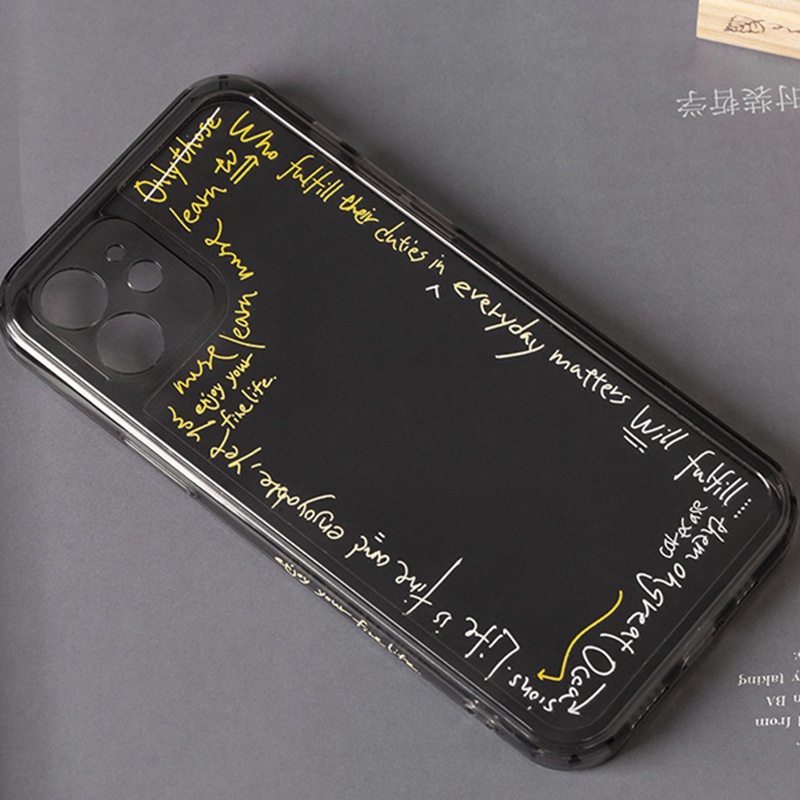 Only those
Who fulfill their duties in everyday matters Will fulfill.....
them on great Occa
sions. Life is fine and enjoyable, yet you
learn to
learn
more
enjoy your
fine life.
enjoy your fine life.
时装哲学
taking
BA
from